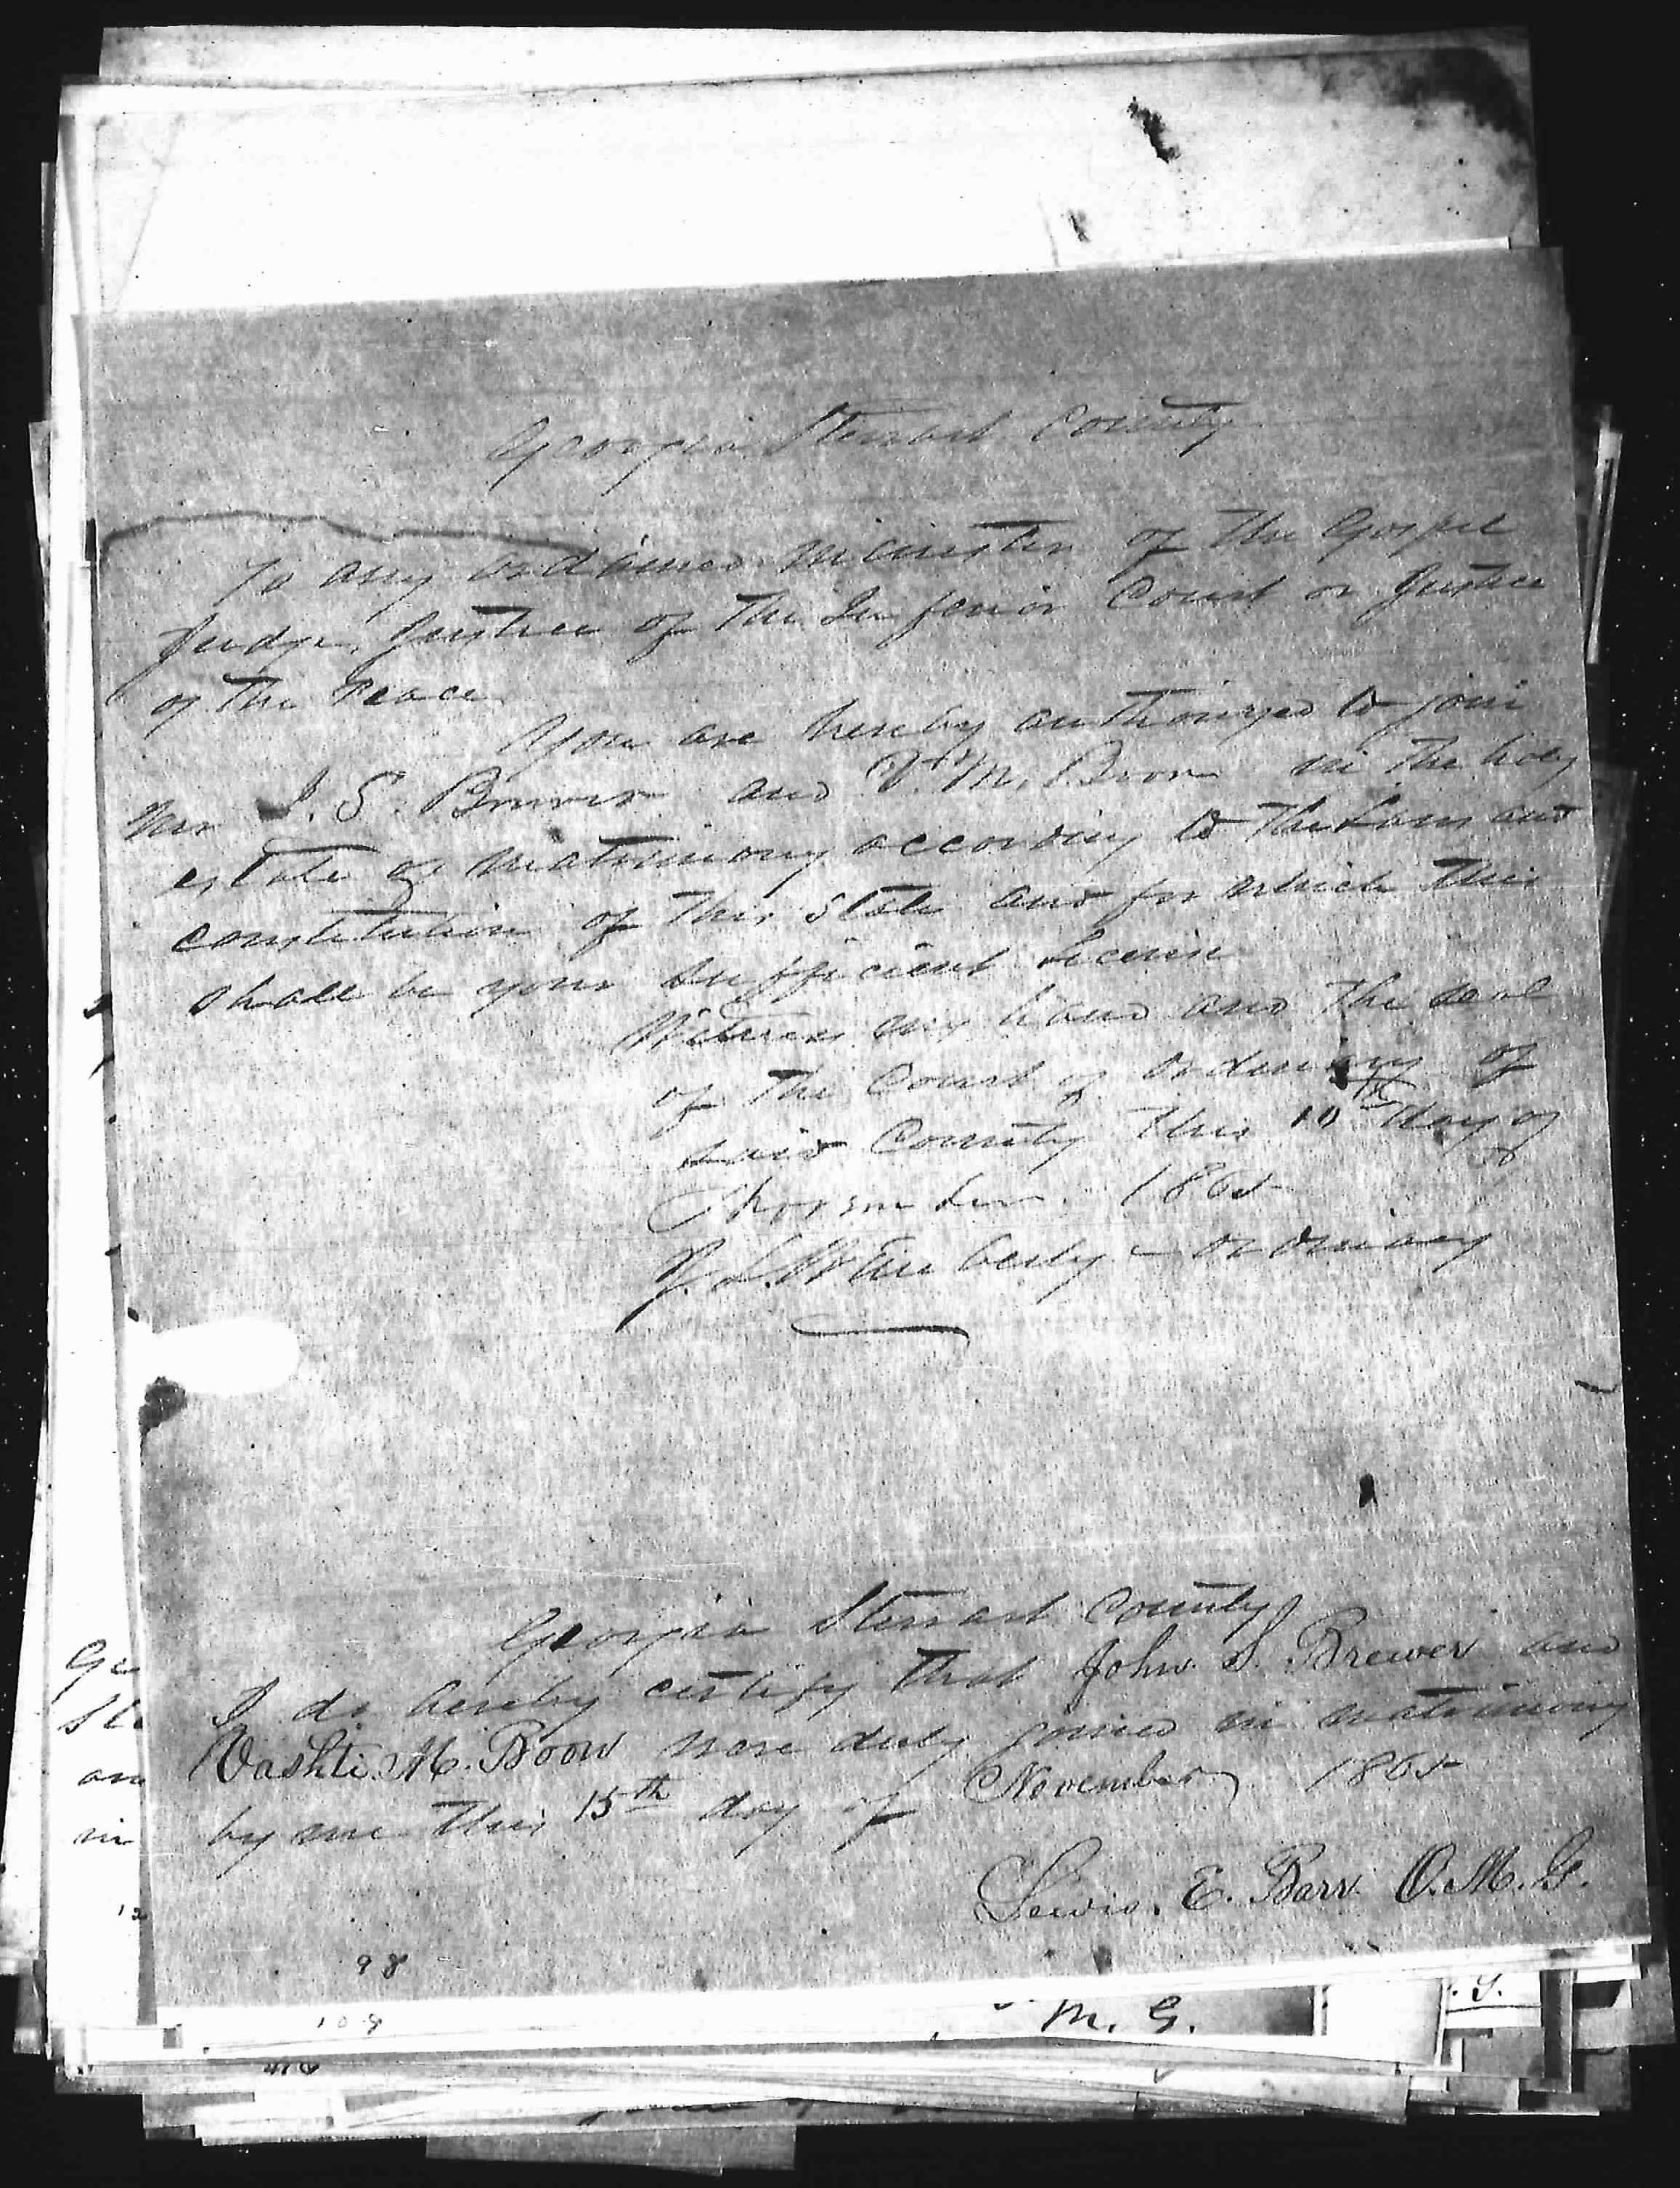 Georgia Stewart County
To any ordained minister of the Gospel
Judge, Justice of the Inferior Court or Justice
of the Peace
You are hereby authorized to join
Mr J. S. Brewer and V. M. Boon in the holy
estate of matrimony according to the Laws and
constitution of this State and for which this
shall be your sufficient license
Witness my hand and the seal
of the Court of ordinary of
said County this 10th day of
November 1865
J. L. Wimberly - ordinary
Georgia Stewart County
I do hereby certify that John S. Brewer and
Vashti M. Boon were duly joined in matrimony
by me this 15th day of November 1865
Lewis. E. Barr. O. M. G.
98
Ge
Ste
an
in
12
108
M. G.
. G.